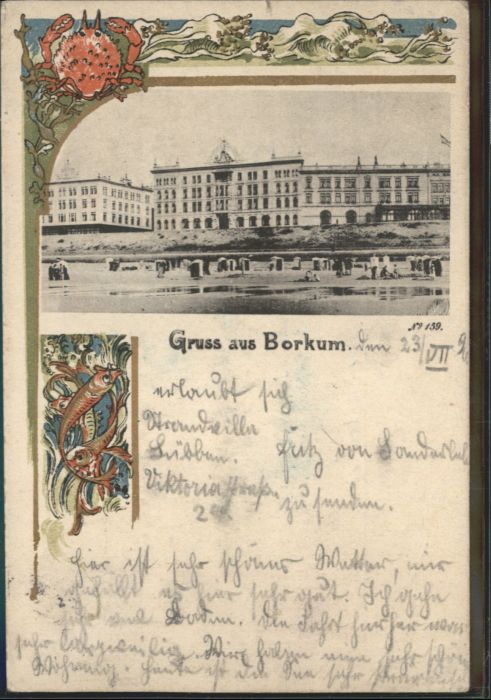 No 139.
Gruss aus Borkum. den 23/VII 9
erlaubt sich
Strandvilla
Lübben. Fritz von
Viktoriastraß. zu senden.
hier ist sehr schönes Wetter, mir
gefällt es hier sehr gut. Ich gehe
Baden. Die Fahrt hierher war
sehr langweilig. Wir haben eine sehr schöne
Wohnung. heute ist die See sehr